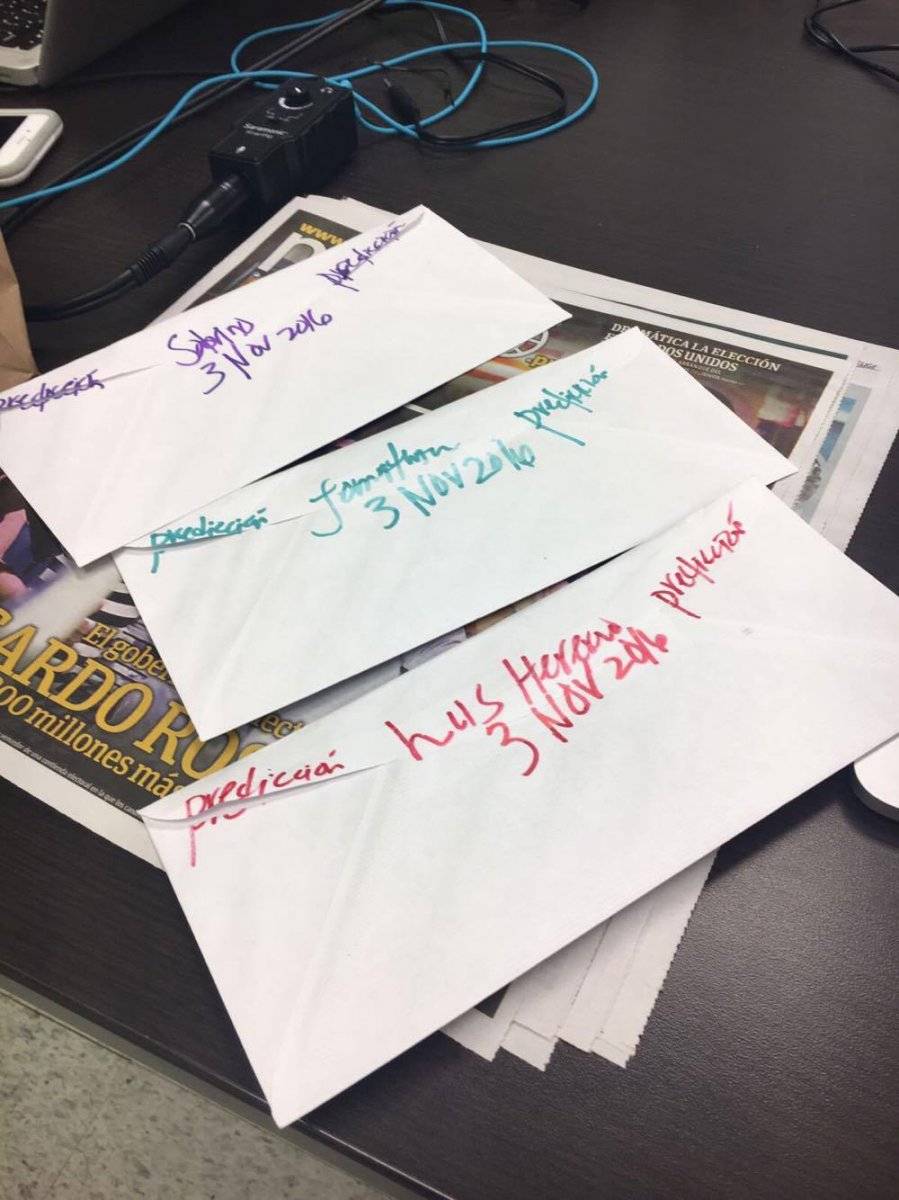 Saramonic
www
DRAMÁTICA LA ELECCIÓN
DOS UNIDOS
predicción
3 Nov 2016
predicción
predicción
Jonathan
3 Nov 2016
predicción
predicción
Luis Herrero
3 Nov 2016
predicción
El gober
ARDO RO
00 millones más